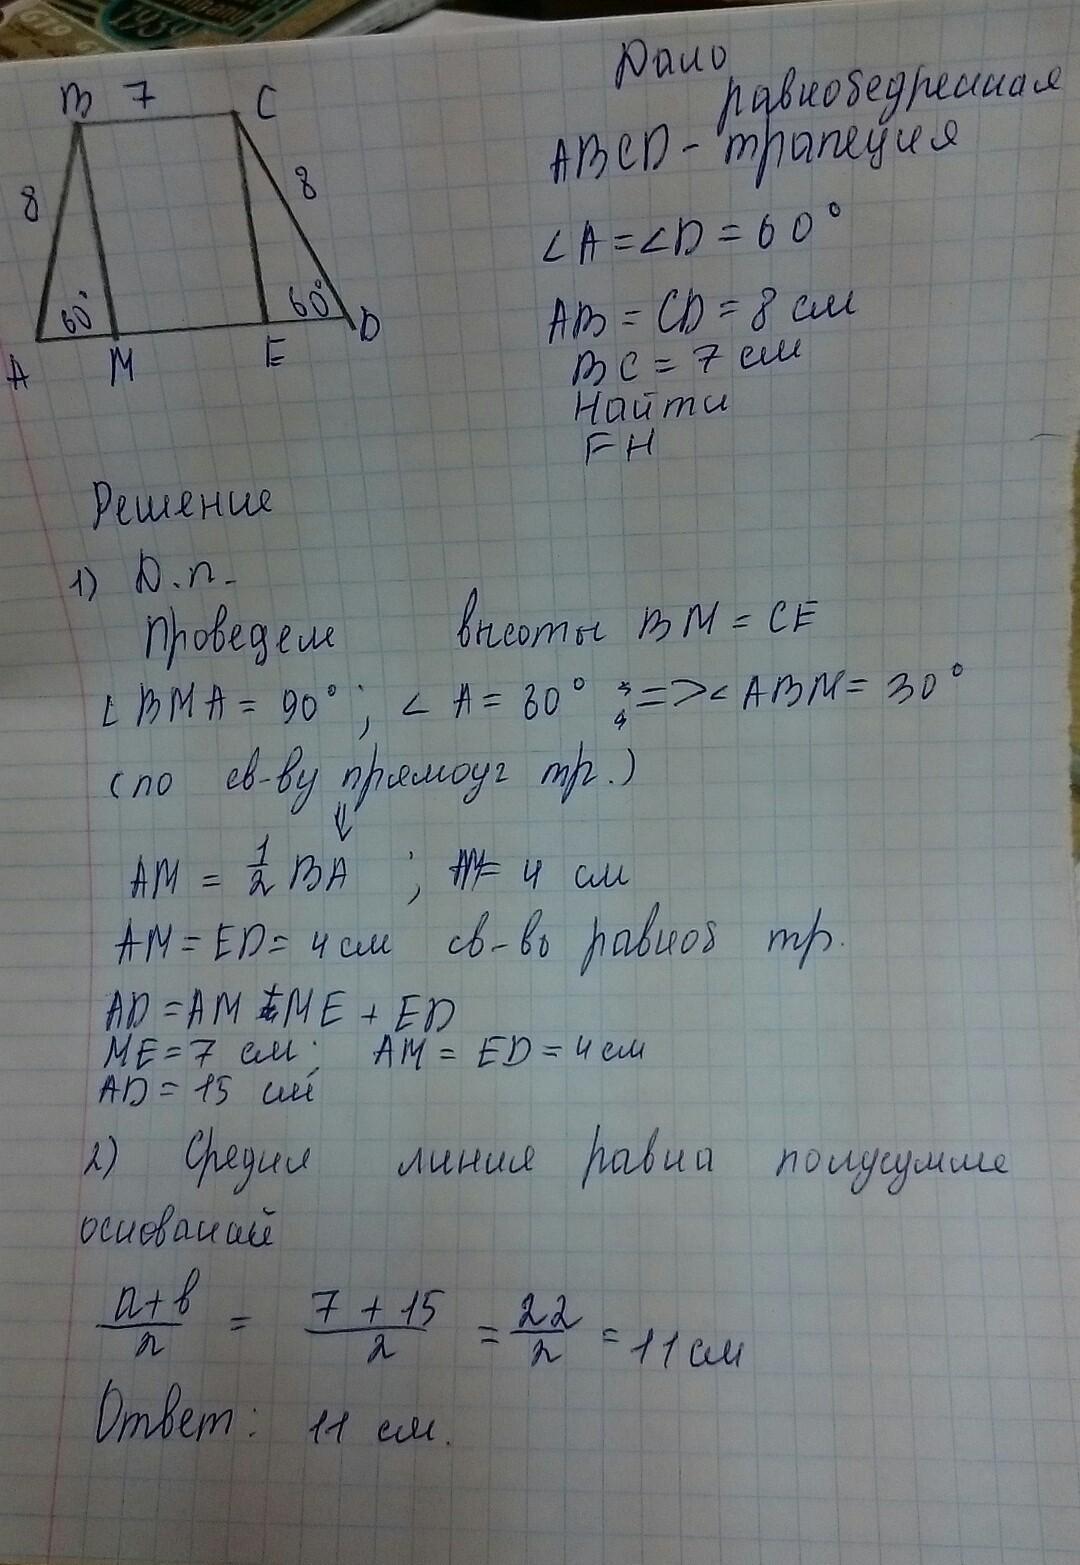 1959
В 7 С
8
8
60°
60°
А М Е D
Дано
равнобедренная
ABCD - трапеция
∠A = ∠D = 60°
AB = CD = 8 см
BC = 7 см
Найти
FH
Решение
1) Д.п.
Проведем высоты BM = CE
∠BMA = 90°; ∠A = 60° => ∠ABM = 30°
(по св-ву прямоуг тр.)
⇓
AM = 1/2 BA ; AM = 4 см
AM = ED = 4 см св-во равноб тр.
AD = AM + ME + ED
ME = 7 см; AM = ED = 4 см
AD = 15 см
2) Средня линия равна полусумме
оснований
a+b/2 = 7+15/2 = 22/2 = 11 см
Ответ: 11 см.